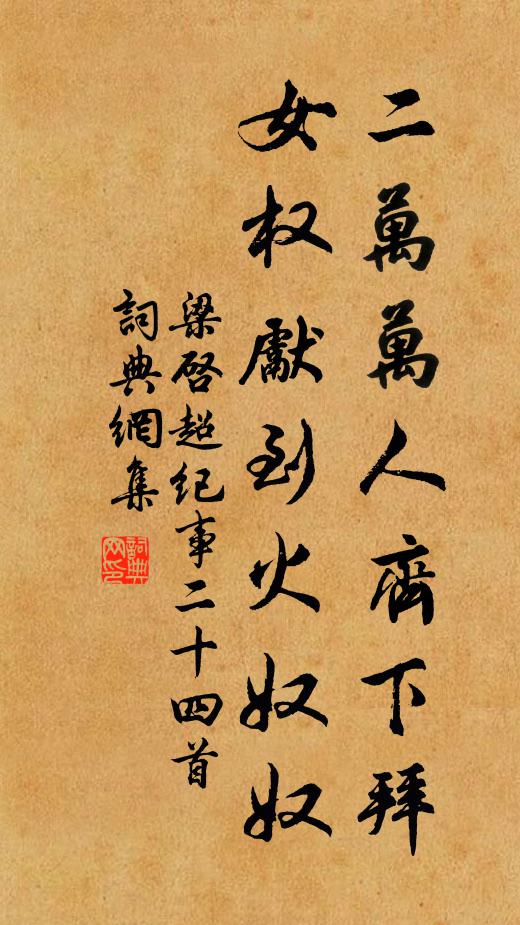 二萬萬人齊下拜
女权獻到火奴奴
梁啓超纪事二十四首
詞典網集
詞典
网印